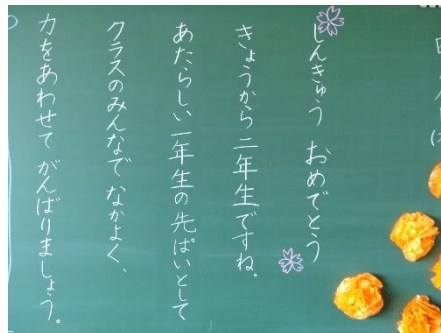 しんきゅう おめでとう
きょうから二年生ですね。
あたらしい一年生の先ぱいとして
クラスのみんなで なかよく、
力をあわせて がんばりましょう。